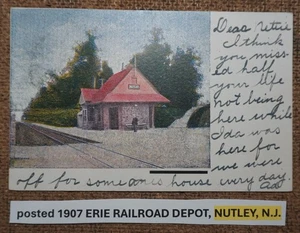 Dear Nettie
I think
you miss-
ed half
your life
not being
here while
Ida was
here for
we were
off for someones house every day.
NUTLEY
posted 1907 ERIE RAILROAD DEPOT, NUTLEY, N.J.